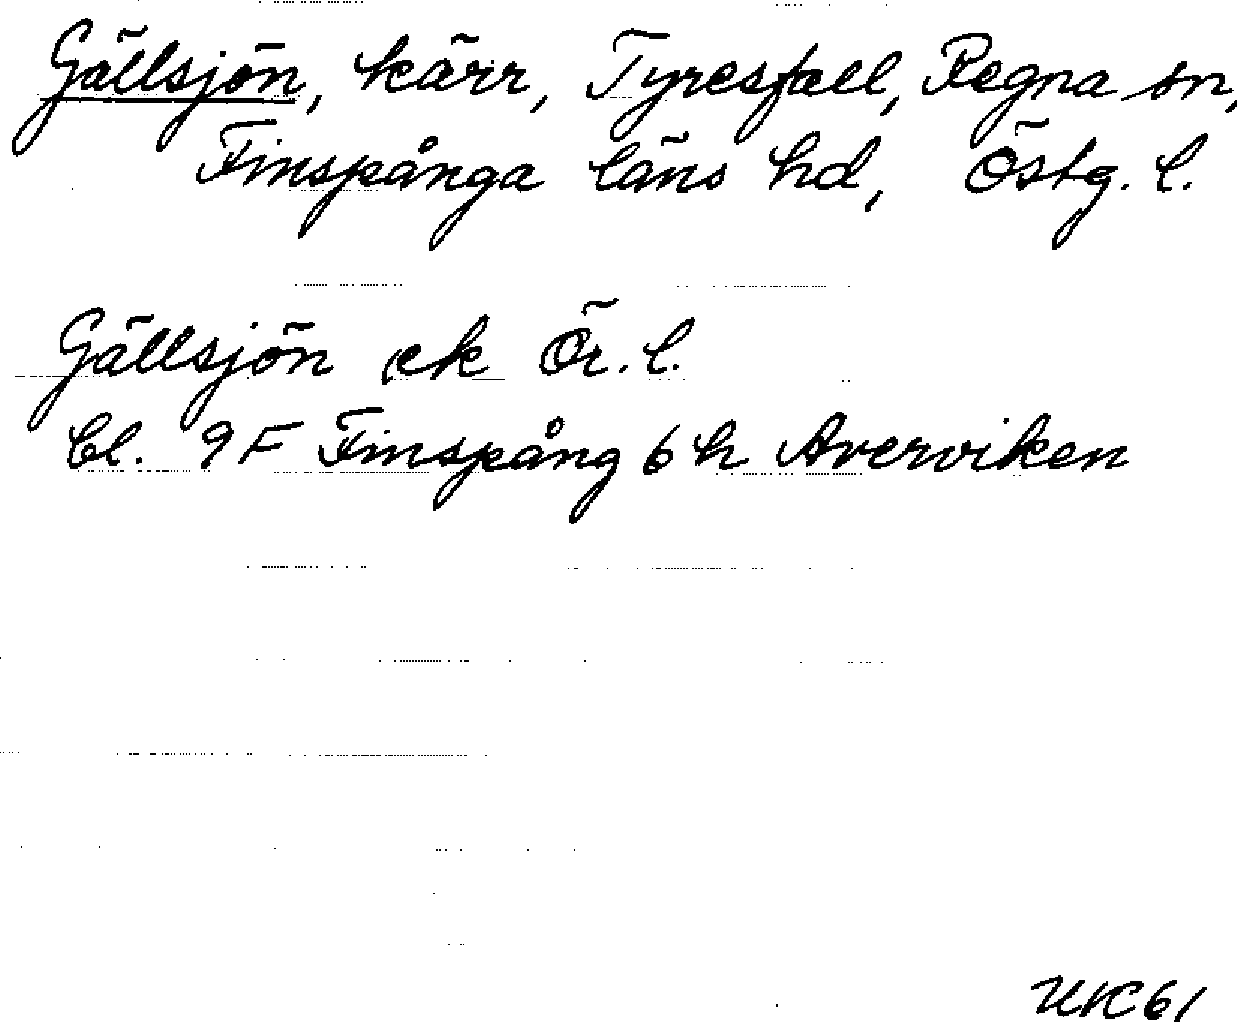 Gällsjön, kärr, Tyresfall, Regna sn,
Finspånga läns hd, Östg. l.
Gällsjön ek Ör. l.
Bl. 9F Finspång 6h Averviken